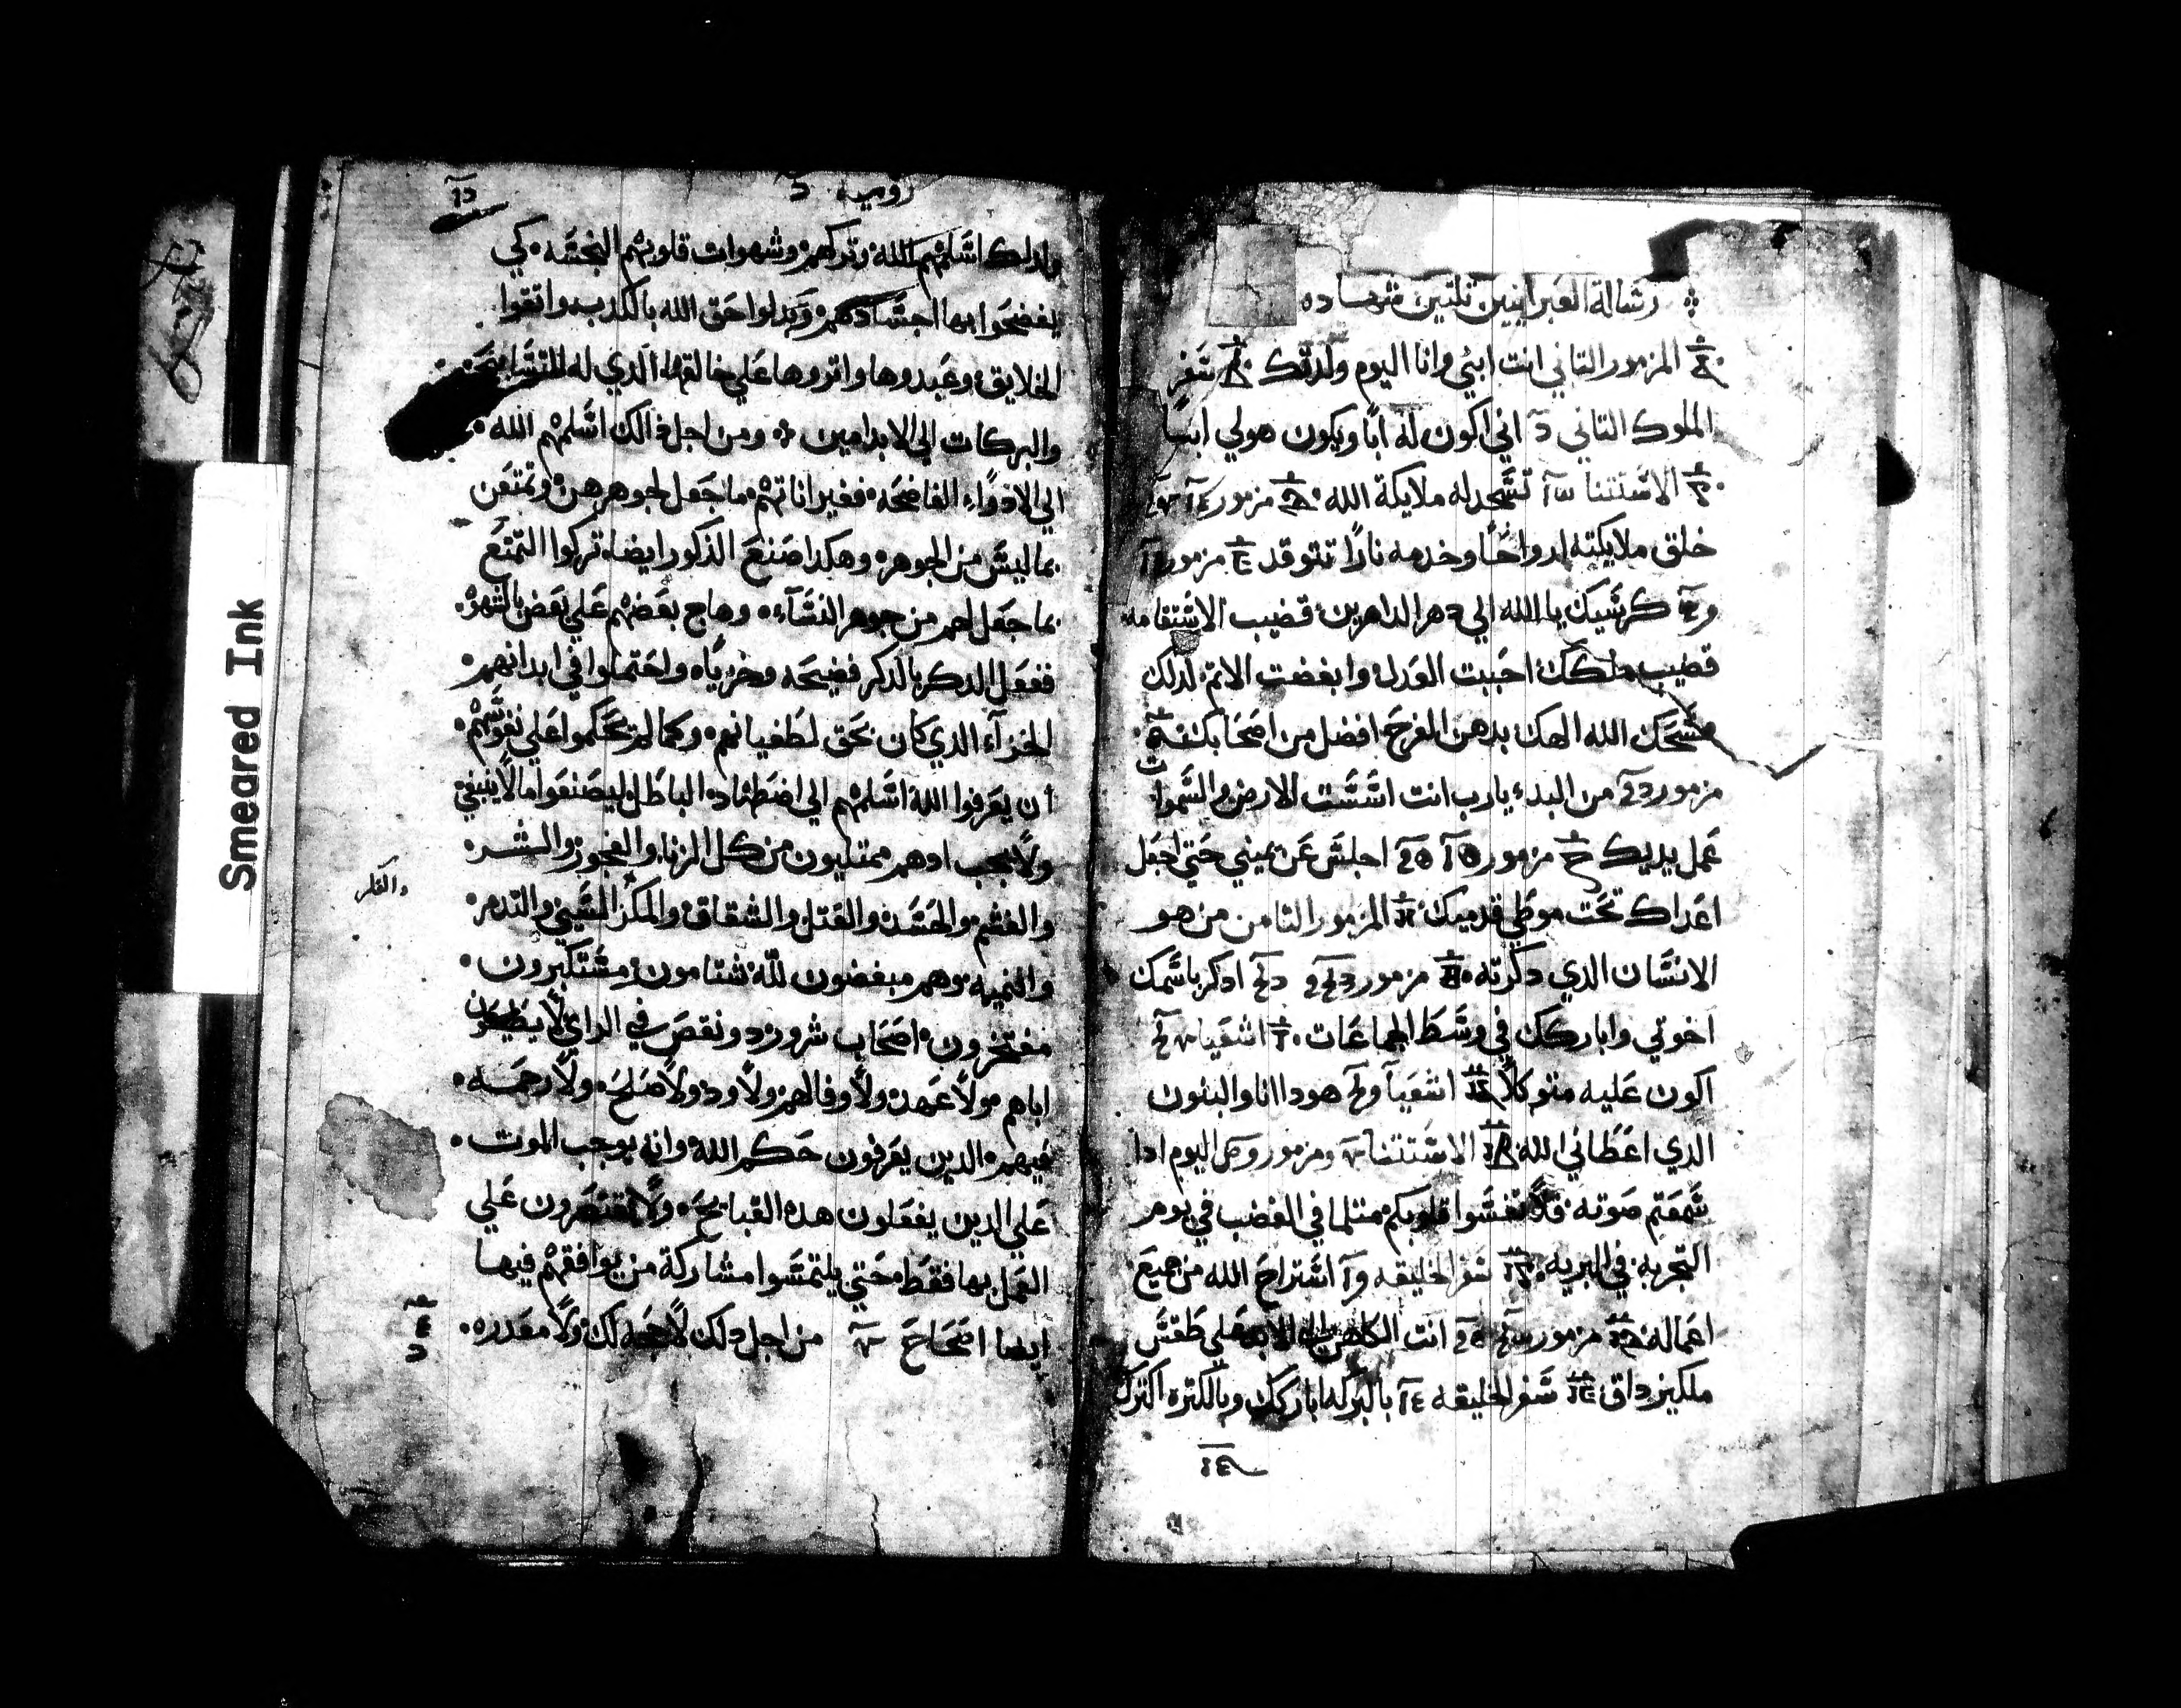 رساله العبرانيين تلتين شهاده
المزمور التاني انت ابني وانا اليوم ولدتك سفر
الملوك التاني اني اكون له ابا ويكون هو لي ابنا
الاستتنا تسجد له ملايكة الله مزمور
خلق ملايكته ارواحا وخدمه نارا تتوقد مزمور
كرسيك يا الله الي دهر الداهرين قضيب الاستقامه
قضيب ملكك احببت العدل وابغضت الاتم لدلك
مسحك الله الهك بدهن الفرح افضل من اصحابك
مزمور من البدء يارب انت اسست الارض والسموات
عمل يديك مزمور اجلس عن يميني حتي اجعل
اعداك تحت موطي قدميك المزمور التامن من هو
الانسان الدي دكرته مزمور ادكر باسمك
اخوتي واباركك في وسط الجماعات اشعيا
اكون عليه متوكلا اشعيا هودا انا والبنون
الدي اعطاني الله الاستتنا ومزمور اليوم ادا
سمعتم صوته فلا تقسوا قلوبكم متلما في الغضب في يوم
التجربه في البريه سفر الخليقه استراح الله من جميع
اعماله مزمور انت الكاهن الي الابد علي طقس
ملكيزداق سفر الخليقه بالبركه اباركك وبالكتره اكترك
روميه
ولدلك اسلمهم الله وتركهم وشهوات قلوبهم النجسه كي
يفضحوا بها اجسادهم وبدلوا حق الله بالكدب واتقوا
الخلايق وعبدوها واتروها علي خالقها الدي له التسابيح
والبركات الي الابد امين ومن اجل دالك اسلمهم الله
الي الادواء الفاضحه فغير اناتهم ما جعل لجوهرهن وتمتعن
بما ليس من الجوهر وهكدا صنع الدكور ايضا تركوا التمتع
بما جعل لهم من جوهر النساء وهاج بعضهم علي بعض بالشهوه
ففعل الدكر بالدكر فضيحه وخزيا واحتملوا في ابدانهم
الجزاء الدي كان بحق لطغيانهم وكما لم يحكموا علي نفوسهم
ان يعرفوا الله اسلمهم الي اضطهاد الباطل ليصنعوا ما لا ينبغي
ولا يجب ادهم ممتليون من كل الزنا والفجور والشر
والغشم والحسد والقتل والشقاق والمكر السي والتدمر
والفكر
والنميه وهم مبغضون لله شتامون مستكبرون
مفتخرون اصحاب شرور دو نقص في الراي لا يطيعون
اباهم ولا عهد ولا وفا لهم ولا ود ولا صلح ولا رحمه
فيهم الدين يعرفون حكم الله وانه يوجب الموت
علي الدين يفعلون هده القبايح ولا يقتصرون علي
العمل بها فقط حتي يلتمسوا مشاركة من يوافقهم فيها
ايضا اصحاح من اجل دلك لا حجه لك ولا معدره
Smeared Ink